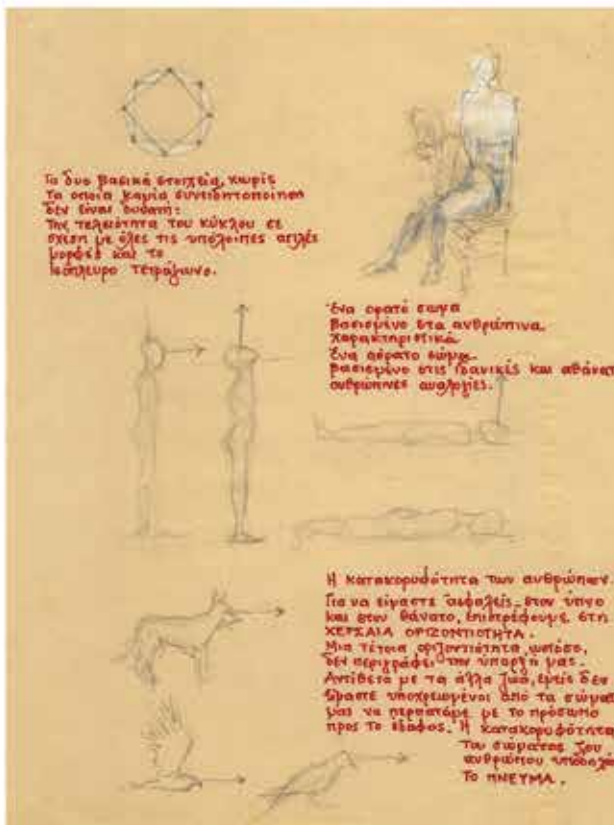 Τα δυο βασικά στοιχεία, χωρίς
Τα οποία καμία συνειδητοποίηση
δεν είναι δυνατή:
Την τελειότητα του κύκλου σε
σχέση με όλες τις υπόλοιπες απλές
μορφές και το
Ισόπλευρο τετράγωνο.
Ένα ορατό σώμα
βασισμένο στα ανθρώπινα
χαρακτηριστικά
Ένα αόρατο σώμα
βασισμένο στις ιδανικές και αθάνατ
ανθρώπινες αναλογίες.
Η κατακορυφότητα των ανθρώπων.
Για να είμαστε ασφαλείς στον ύπνο
και στον θάνατο, επιστρέφουμε στη
ΧΕΡΣΑΙΑ ΟΡΙΖΟΝΤΙΟΤΗΤΑ.
Μια τέτοια οριζοντιότητα, ωστόσο,
δεν περιγράφει την ύπαρξή μας.
Αντίθετα με τα άλλα ζώα, εμείς δεν
είμαστε υποχρεωμένοι από τα σώμα
μας να περπατάμε με το πρόσωπο
προς το έδαφος. Η κατακορυφότητα
Του σώματος του
ανθρώπου
Το ΠΝΕΥΜΑ.